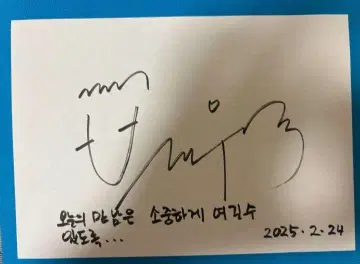 오늘의 만남은 소중하게 여길수
있도록...
2025.2.24